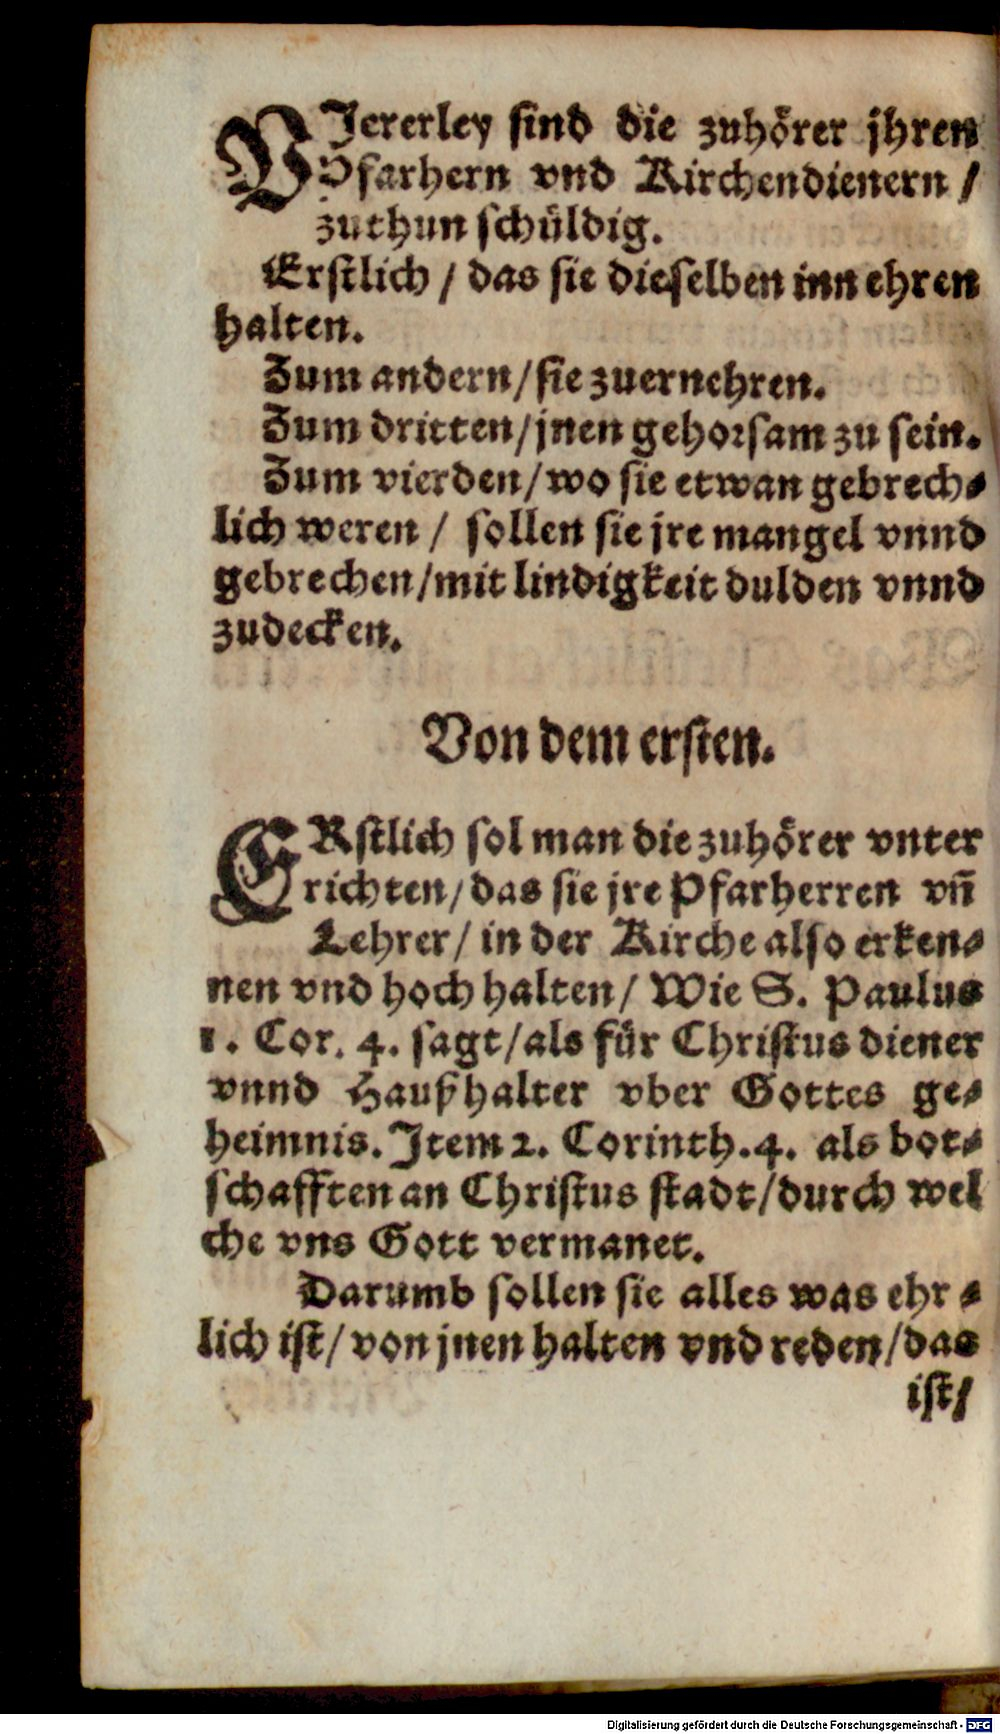 VJererley sind die zuhörer jhren
Pfarhern vnd Kirchendienern /
zuthun schüldig.
Erstlich / das sie dieselben inn ehren
halten.
Zum andern/sie zuernehren.
Zum dritten/jnen gehorsam zu sein.
Zum vierden/wo sie etwan gebrech⸗
lich weren / sollen sie jre mangel vnnd
gebrechen/mit lindigkeit dulden vnnd
zudecken.
Von dem ersten.
ERstlich sol man die zuhörer vnter
richten/das sie jre Pfarherren vn̄
Lehrer/ in der Kirche also erken⸗
nen vnd hoch halten/ Wie S. Paulus
1. Cor. 4. sagt/als für Christus diener
vnnd Haußhalter vber Gottes ge⸗
heimnis. Jtem 2. Corinth.4. als bot⸗
schafften an Christus stadt/durch wel
che vns Gott vermanet.
Darumb sollen sie alles was ehr⸗
lich ist/von jnen halten vnd reden/das
ist/
Digitalisierung gefördert durch die Deutsche Forschungsgemeinschaft - DFG